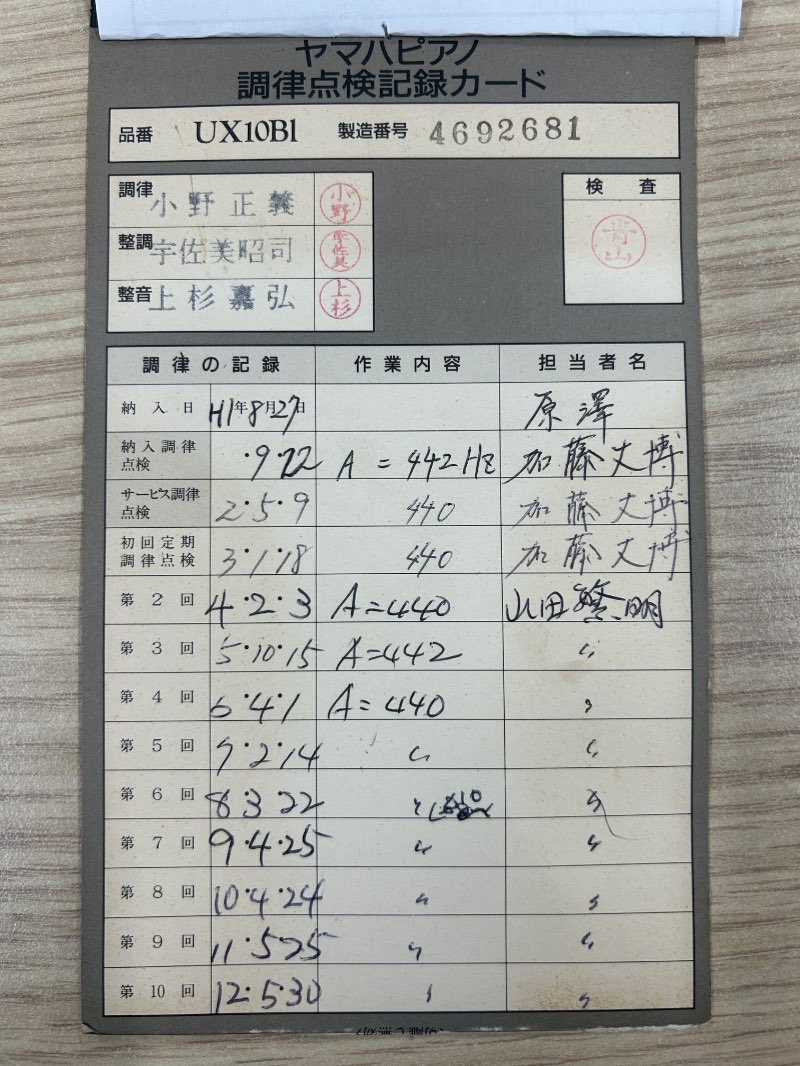 ヤマハピアノ
調律点検記録カード
品番 UX10Bl 製造番号 4692681
調律 小野正義 小野
整調 宇佐美昭司 宇佐美
整音 上杉嘉弘 上杉
検査
青山
調律の記録 作業内容 担当者名
納入日 H1年8月27日 原澤
納入調律点検 ・9・22 A=442Hz 加藤丈博
サービス調律点検 2・5・9 440 加藤丈博
初回定期調律点検 3・1・18 440 加藤丈博
第2回 4・2・3 A=440 山田繁明
第3回 5・10・15 A=442 〃
第4回 6・4・1 A=440 〃
第5回 7・2・14 〃 〃
第6回 8・3・22 〃 〃
第7回 9・4・25 〃 〃
第8回 10・4・24 〃 〃
第9回 11・5・25 〃 〃
第10回 12・5・30 〃 〃